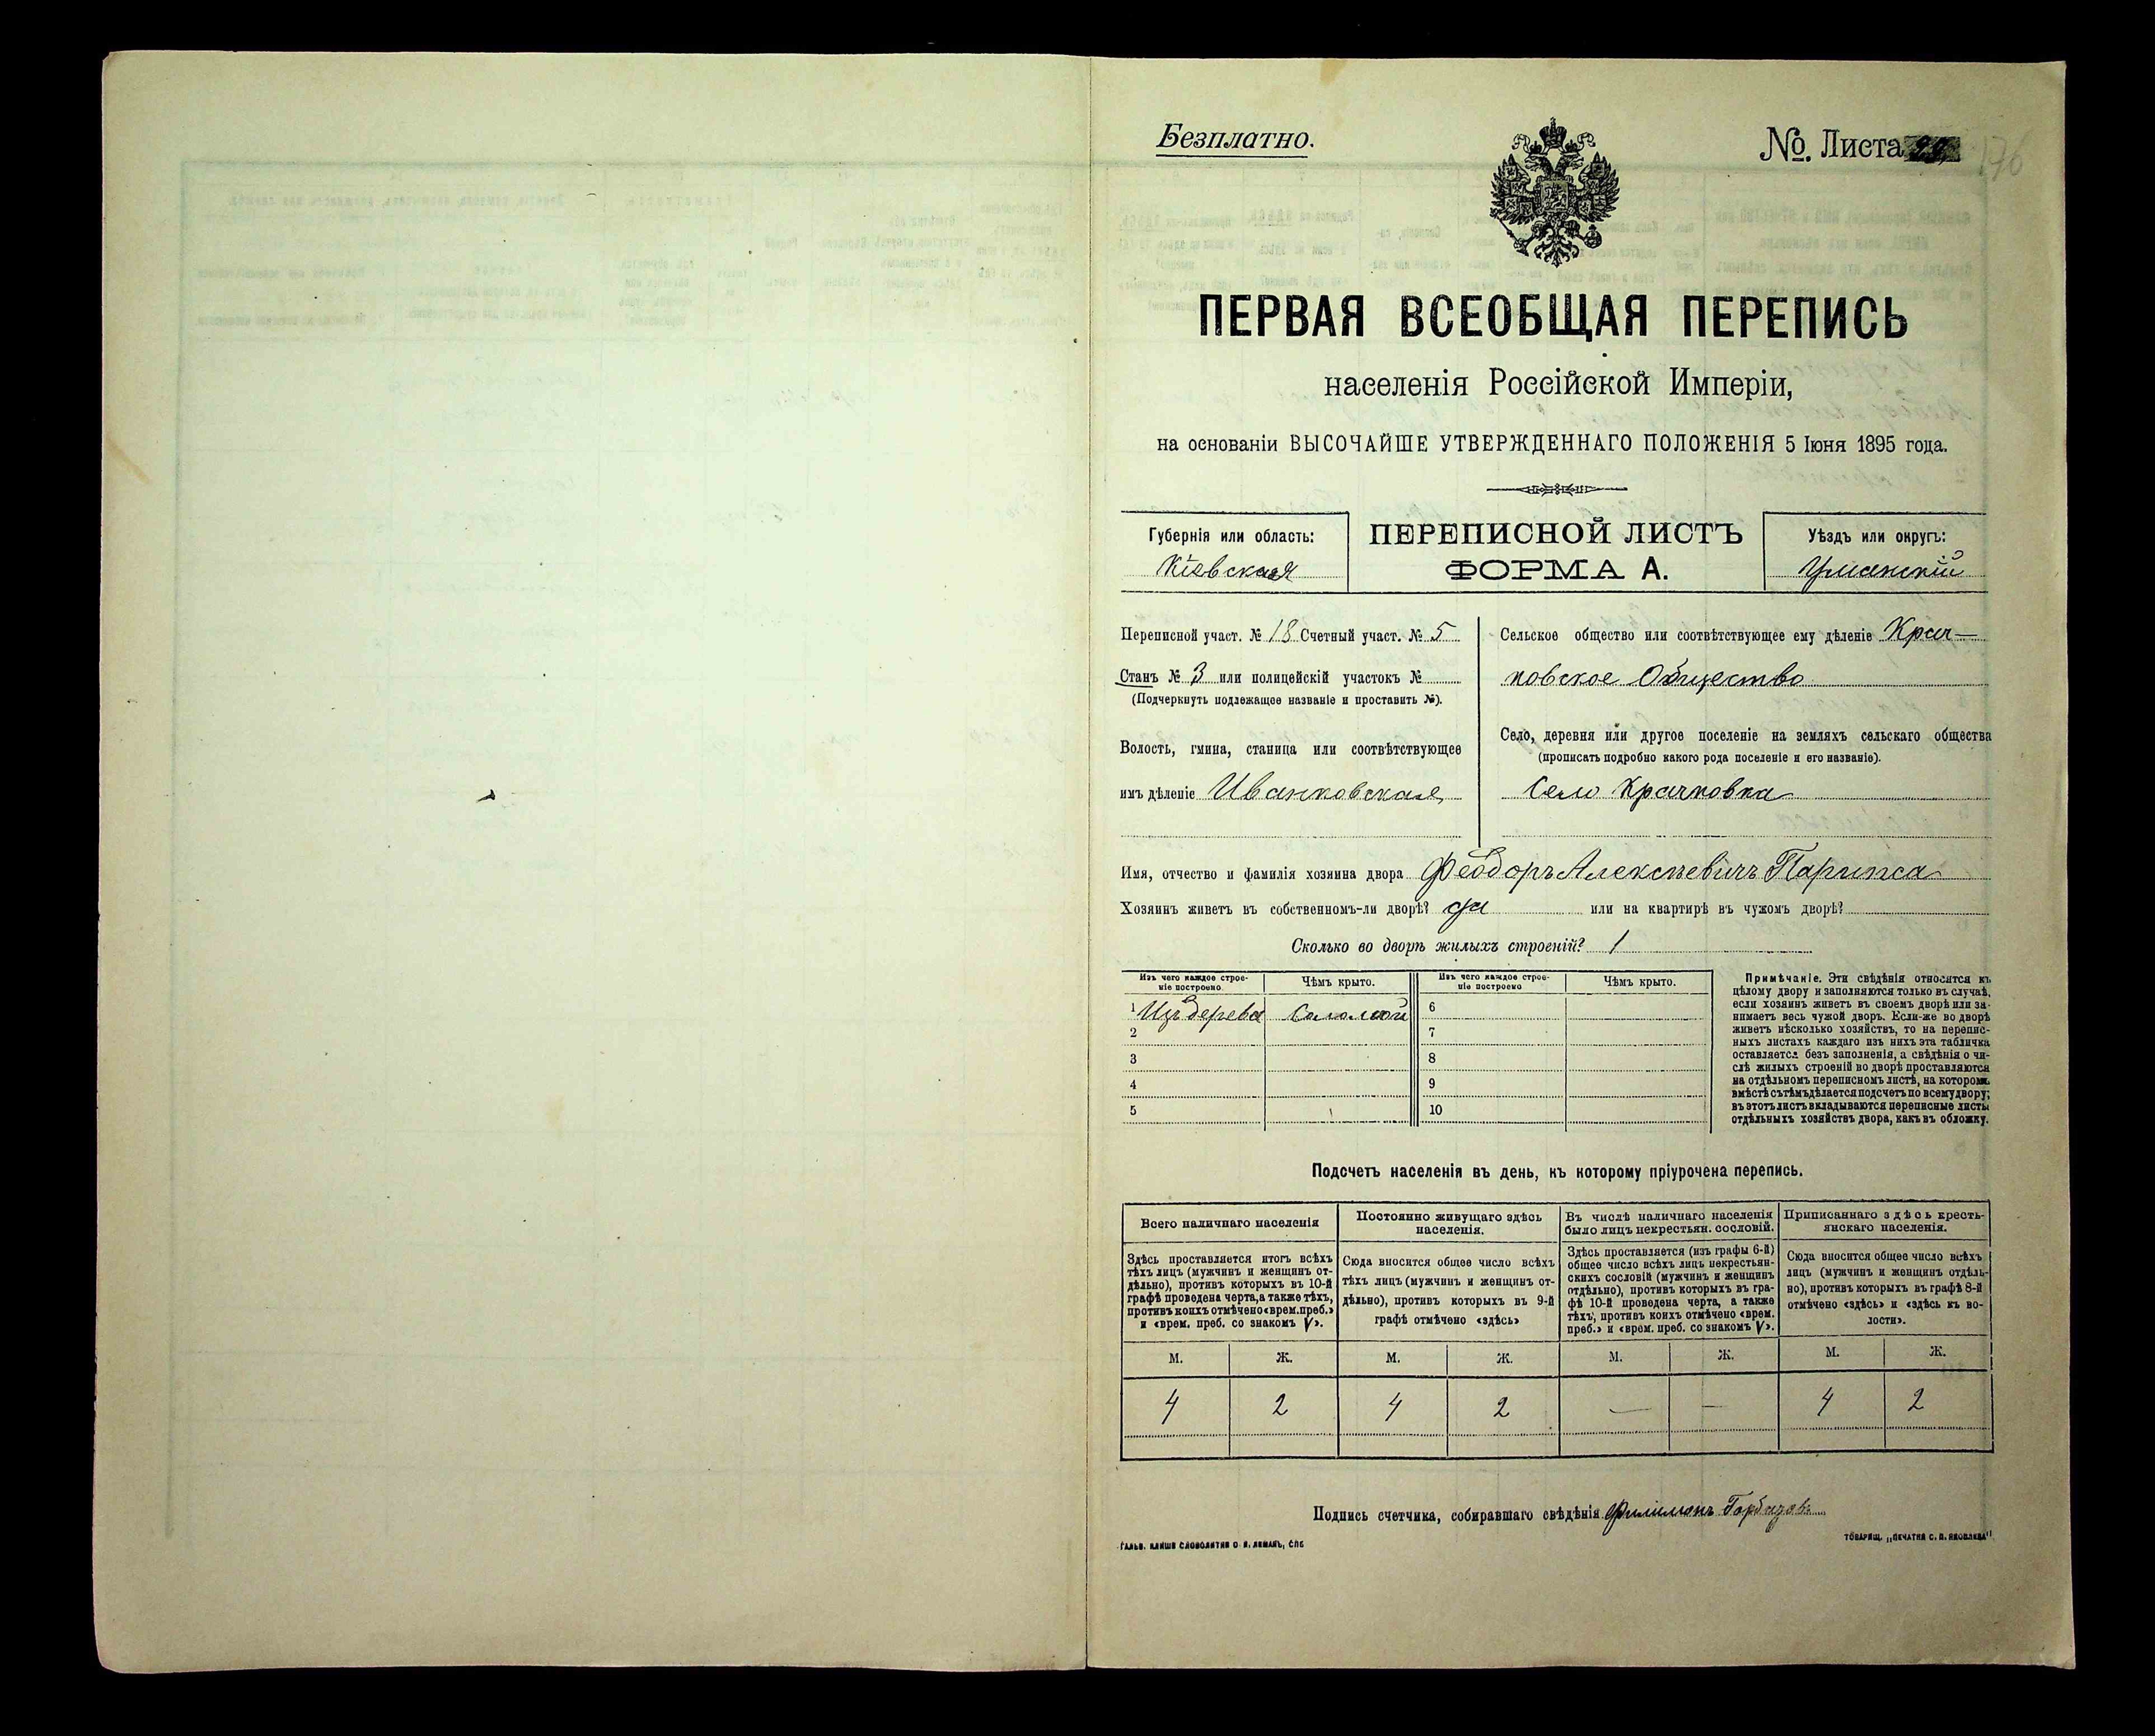 Безплатно.
№. Листа 29
176
ПЕРВАЯ ВСЕОБЩАЯ ПЕРЕПИСЬ
населенія Россійской Имперіи,
на основаніи ВЫСОЧАЙШЕ УТВЕРЖДЕННАГО ПОЛОЖЕНІЯ 5 Іюня 1895 года.
Губернія или область:
Кіевская
ПЕРЕПИСНОЙ ЛИСТЪ
ФОРМА А.
Уѣздъ или округъ:
Уманскій
Переписной участ. № 18 Счетный участ. № 5
Станъ № 3 или полицейскій участокъ №
(Подчеркнуть подлежащее названіе и проставить №).
Волость, гмина, станица или соотвѣтствующее
имъ дѣленіе Иванковская
Сельское общество или соотвѣтствующее ему дѣленіе Крач-
ковское Общество
Село, деревня или другое поселеніе на земляхъ сельскаго общества
(прописать подробно какого рода поселеніе и его названіе).
Село Крачковка
Имя, отчество и фамилія хозяина двора Феодоръ Алексѣевичъ
Хозяинъ живетъ въ собственномъ-ли дворѣ? да или на квартирѣ въ чужомъ дворѣ?
Сколько во дворѣ жилыхъ строеній? 1
Изъ чего каждое строе-
ніе построено.
Чѣмъ крыто.
Изъ чего каждое строе-
ніе построено
Чѣмъ крыто.
1 Изъ дерева Соломой 6
2 7
3 8
4 9
5 10
Примѣчаніе. Эти свѣдѣнія относятся къ
цѣлому двору и заполняются только въ случаѣ,
если хозяинъ живетъ въ своемъ дворѣ или за-
нимаетъ весь чужой дворъ. Если-же во дворѣ
живетъ нѣсколько хозяйствъ, то на перепис-
ныхъ листахъ каждаго изъ нихъ эта табличка
оставляется безъ заполненія, а свѣдѣнія о чи-
слѣ жилыхъ строеній во дворѣ проставляются
на отдѣльномъ переписномъ листѣ, на которомъ
вмѣстѣ съ тѣмъ дѣлается подсчетъ по всему двору;
въ этотъ листъ вкладываются переписные листы
отдѣльныхъ хозяйствъ двора, какъ въ обложку.
Подсчетъ населенія въ день, къ которому пріурочена перепись.
Всего наличнаго населенія
Здѣсь проставляется итогъ всѣхъ
тѣхъ лицъ (мужчинъ и женщинъ от-
дѣльно), противъ которыхъ въ 10-й
графѣ проведена черта, а также тѣхъ,
противъ коихъ отмѣчено «врем. преб.»
и «врем. преб. со знакомъ V».
Постоянно живущаго здѣсь
населенія.
Сюда вносится общее число всѣхъ
тѣхъ лицъ (мужчинъ и женщинъ от-
дѣльно), противъ которыхъ въ 9-й
графѣ отмѣчено «здѣсь»
Въ числѣ наличнаго населенія
было лицъ некрестьян. сословій.
Здѣсь проставляется (изъ графы 6-й)
общее число всѣхъ лицъ некрестьян-
скихъ сословій (мужчинъ и женщинъ
отдѣльно), противъ которыхъ въ гра-
фѣ 10-й проведена черта, а также
тѣхъ, противъ коихъ отмѣчено «врем.
преб.» и «врем. преб. со знакомъ V».
Приписаннаго здѣсь кресть-
янскаго населенія.
Сюда вносится общее число всѣхъ
лицъ (мужчинъ и женщинъ отдѣль-
но), противъ которыхъ въ графѣ 8-й
отмѣчено «здѣсь» и «здѣсь къ во-
лости».
М. Ж. М. Ж. М. Ж. М. Ж.
4 2 4 2 — — 4 2
Подпись счетчика, собиравшаго свѣдѣнія Филимонъ
ГАЛЬВ. КЛИШЕ СЛОВОЛИТНИ О. И. ЛЕМАНЪ, СПБ
ТОВАРИЩ. „ПЕЧАТНЯ С. П. ЯКОВЛЕВА"